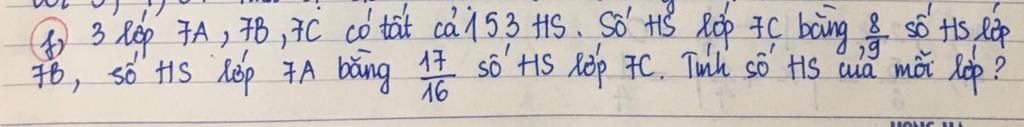 f, 3 lớp 7A, 7B, 7C có tất cả 153 HS. Số HS lớp 7C bằng 8/9 số HS lớp
7B, số HS lớp 7A bằng 17/16 số HS lớp 7C. Tính số HS của mỗi lớp?